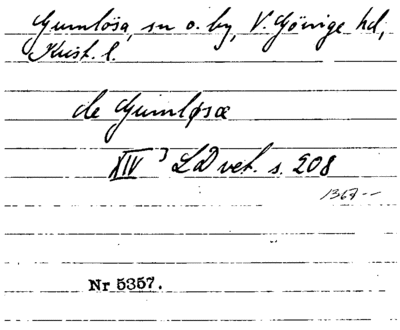 Gumlösa, sn o. by, V. Göinge hd,
Krist. l.
de Gumløsæ
XIV³ LD vet. s. 208
1367--
Nr 5357.